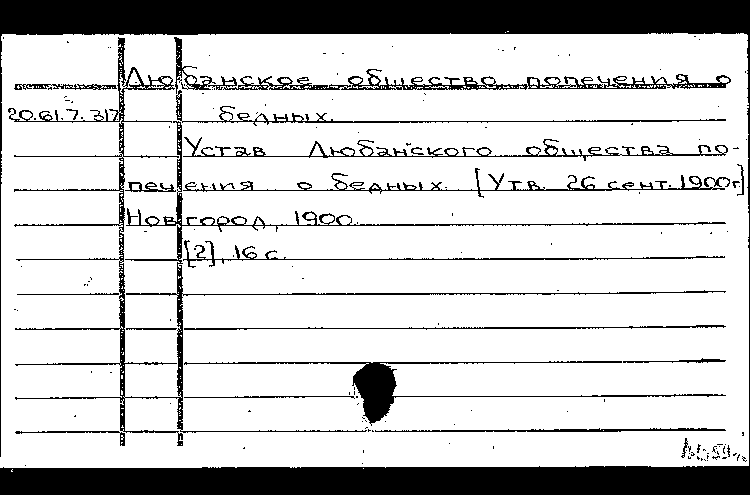 Любанское общество попечения о
20.61.7.317 бедных.
Устав Любанского общества по-
печения о бедных. [Утв. 26 сент. 1900г.]
Новгород, 1900.
[2], 16 с.